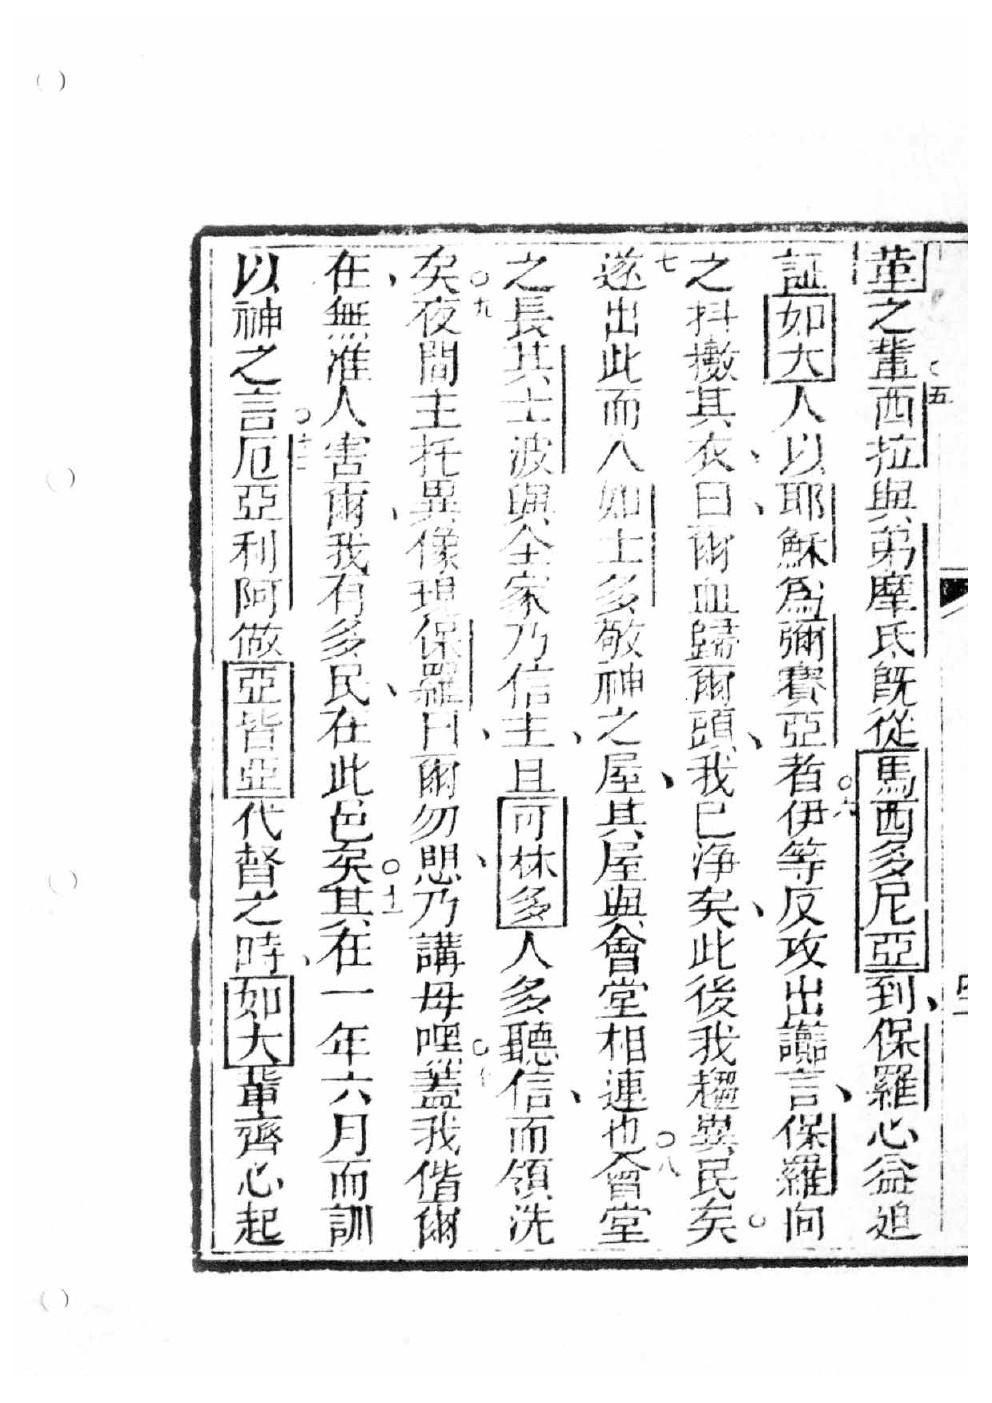 茥之輩五西拉與弟摩氐既從馬西多尼亞到、保羅心益追
証如大人以耶穌為彌賽亞者○六伊等反攻出讟言、保羅向
之抖擻其衣、曰、爾血歸爾頭、我已淨矣、此後我趨異民矣。
七遂出此而入如士多敬神之屋、其屋與會堂相連也○八會堂
之長其士波與全家乃信主、且可林多人多聽信、而領洗
矣○九夜間主托異像現保羅曰、爾勿思、乃講毋嘿○十蓋我偕爾
在、無准人害爾、我有多民、在此邑矣○十一其在一年六月而訓
以神之言○十二厄亞利阿做亞皆亞代督之時、如大輩齊心起